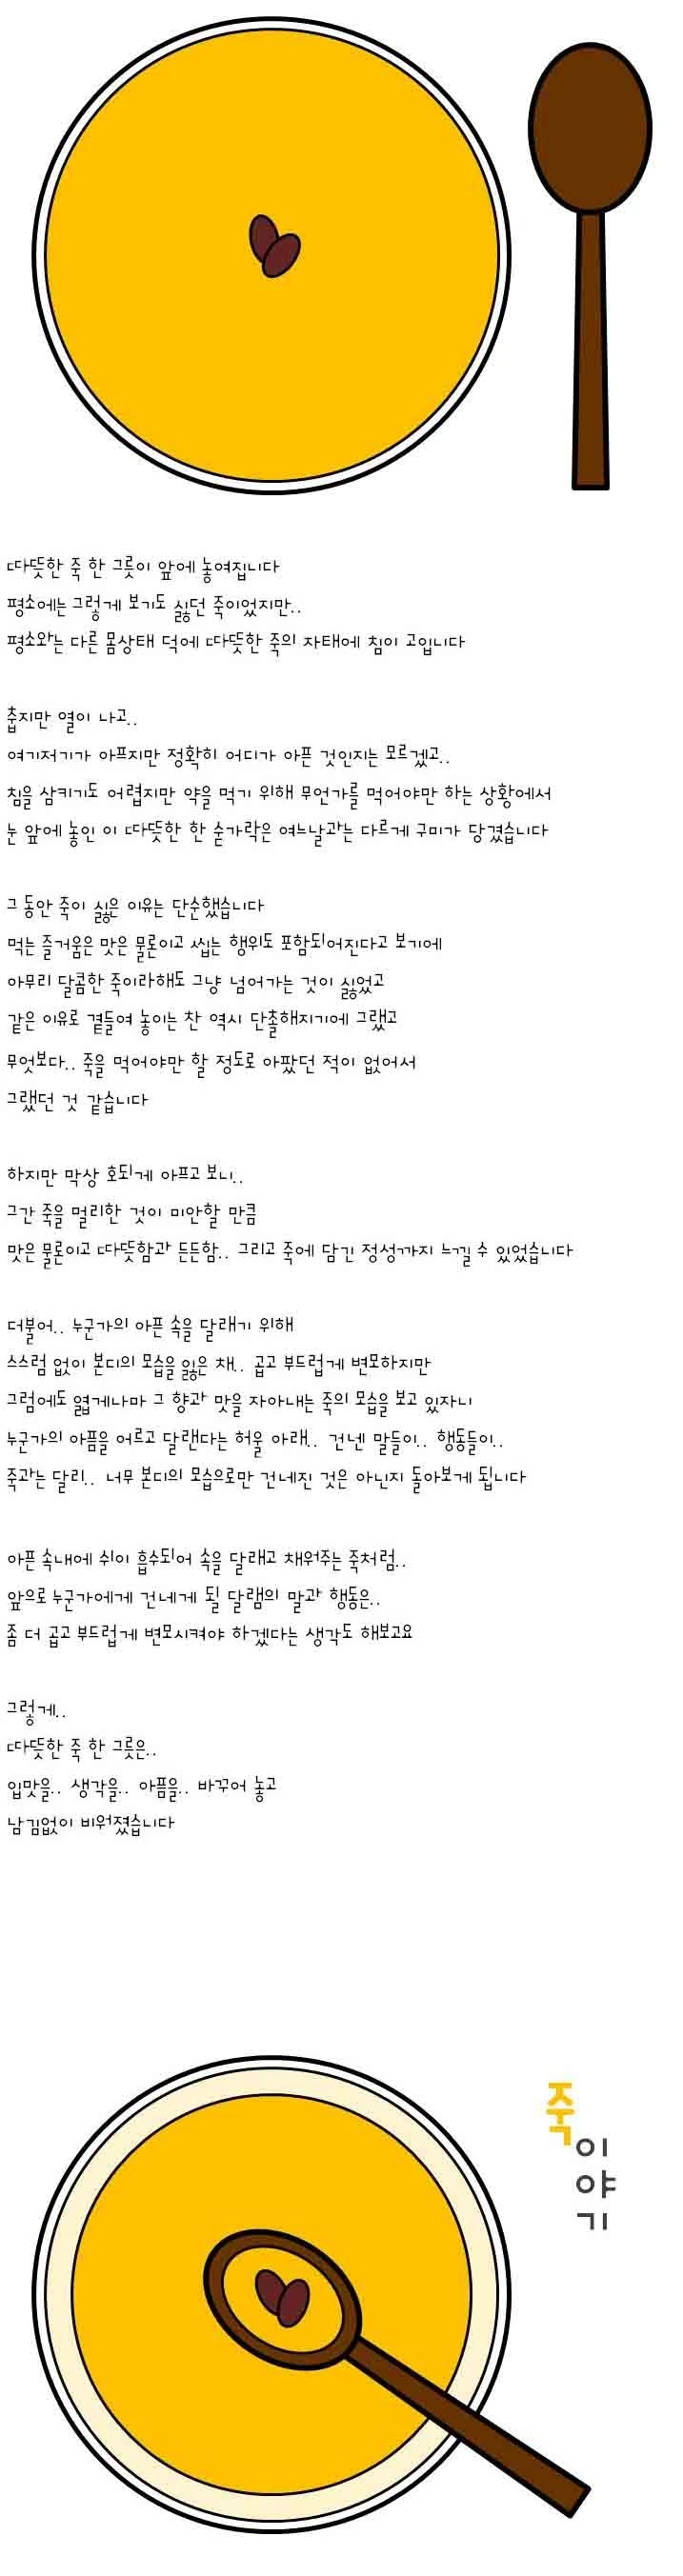 따뜻한 죽 한 그릇이 앞에 놓여집니다
평소에는 그렇게 보기도 싫던 죽이었지만..
평소와는 다른 몸상태 덕에 따뜻한 죽의 자태에 침이 고입니다
춥지만 열이 나고..
여기저기가 아프지만 정확히 어디가 아픈 것인지는 모르겠고..
침을 삼키기도 어렵지만 약을 먹기 위해 무언가를 먹어야만 하는 상황에서
눈 앞에 놓인 이 따뜻한 한 숟가락은 여느날과는 다르게 구미가 당겼습니다
그 동안 죽이 싫은 이유는 단순했습니다
먹는 즐거움은 맛은 물론이고 씹는 행위도 포함되어진다고 보기에
아무리 달콤한 죽이라해도 그냥 넘어가는 것이 싫었고
같은 이유로 곁들여 놓이는 찬 역시 단촐해지기에 그랬고
무엇보다.. 죽을 먹어야만 할 정도로 아팠던 적이 없어서
그랬던 것 같습니다
하지만 막상 호되게 아프고 보니..
그간 죽을 멀리한 것이 미안할 만큼
맛은 물론이고 따뜻함과 든든함.. 그리고 죽에 담긴 정성까지 느낄 수 있었습니다
더불어.. 누군가의 아픈 속을 달래기 위해
스스럼 없이 본디의 모습을 잃은 채.. 곱고 부드럽게 변모하지만
그럼에도 엷게나마 그 향과 맛을 자아내는 죽의 모습을 보고 있자니
누군가의 아픔을 어르고 달랜다는 허울 아래.. 건넨 말들이.. 행동들이..
죽과는 달리.. 너무 본디의 모습으로만 건네진 것은 아닌지 돌아보게 됩니다
아픈 속내에 쉬이 흡수되어 속을 달래고 채워주는 죽처럼..
앞으로 누군가에게 건네게 될 달램의 말과 행동은..
좀 더 곱고 부드럽게 변모시켜야 하겠다는 생각도 해보고요
그렇게..
따뜻한 죽 한 그릇은..
입맛을.. 생각을.. 아픔을.. 바꾸어 놓고
남김없이 비워졌습니다
죽
이
야
기